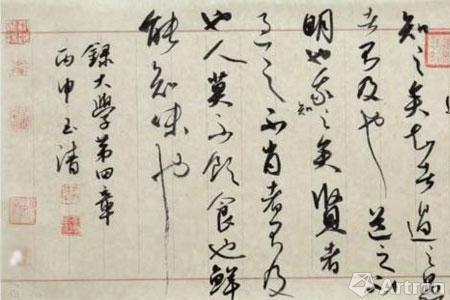 知之矣知者過之愚
者不及也道之不
明也我知之矣賢者
過之不肖者不及
也人莫不飲食也鮮
能知味也
錄大學第四章
丙申玉清
Artron